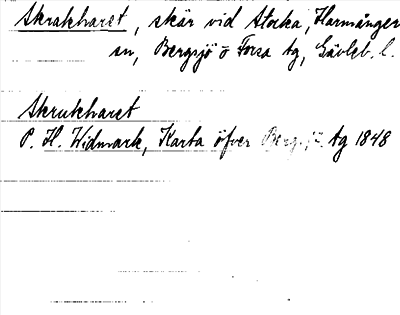 Skrakharet, skär vid Stocka, Harmånger
sn, Bergsjö o Forsa tg, Gävleb. l.
Skrukharet
P. H. Widmark, Karta öfver Bergsjö tg 1848